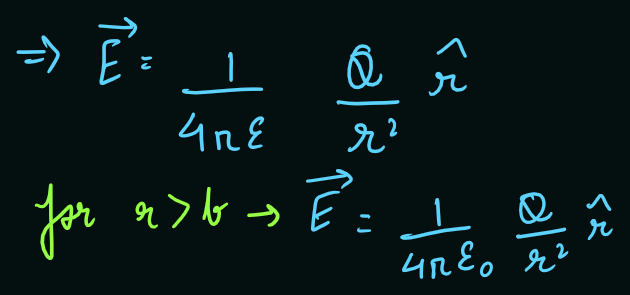 ⇒ \vec{E} = \frac{1}{4πε} \frac{Q}{r²} \hat{r}
for r > b → \vec{E} = \frac{1}{4πε₀} \frac{Q}{r²} \hat{r}